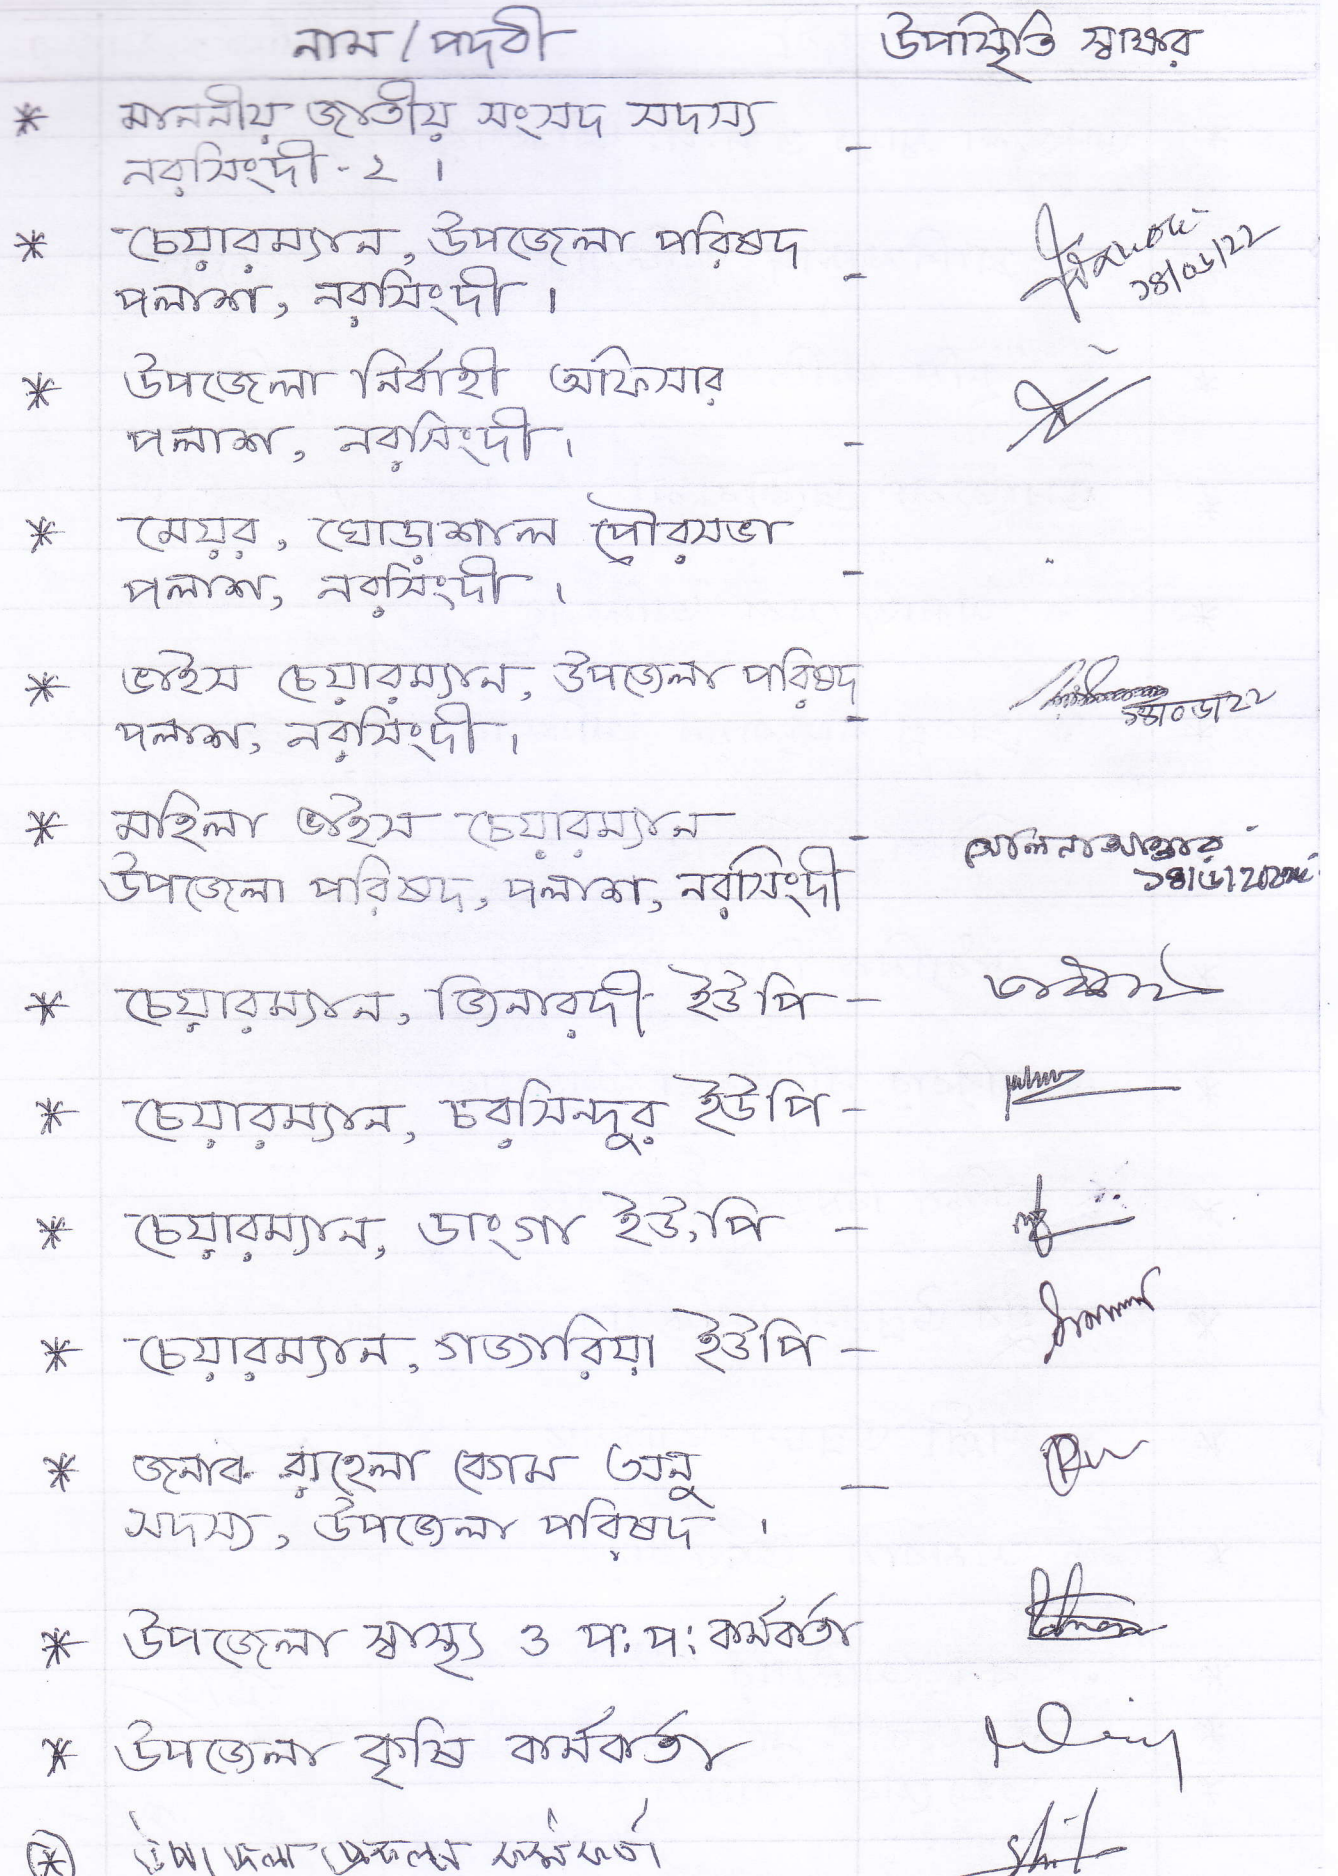 নাম / পদবী উপস্থিতি স্বাক্ষর
* মাননীয় জাতীয় সংসদ সদস্য
নরসিংদী - ২ । -
* চেয়ারম্যান, উপজেলা পরিষদ
পলাশ, নরসিংদী । - ১৪/০৬/২২
* উপজেলা নির্বাহী অফিসার
পলাশ, নরসিংদী । -
* মেয়র, ঘোড়াশাল পৌরসভা
পলাশ, নরসিংদী । -
* ভাইস চেয়ারম্যান, উপজেলা পরিষদ
পলাশ, নরসিংদী । - ১৪/০৬/২২
* মহিলা ভাইস চেয়ারম্যান -
উপজেলা পরিষদ, পলাশ, নরসিংদী
* চেয়ারম্যান, জিনারদী ইউপি -
* চেয়ারম্যান, চরসিন্দুর ইউপি -
* চেয়ারম্যান, ডাংগা ইউ,পি -
* চেয়ারম্যান, গজারিয়া ইউপি -
* জনাব রাহেলা বেগম অনু -
সদস্য, উপজেলা পরিষদ ।
* উপজেলা স্বাস্থ্য ও প: প: কর্মকর্তা
* উপজেলা কৃষি কর্মকর্তা
* উপজেলা কর্মকর্তা